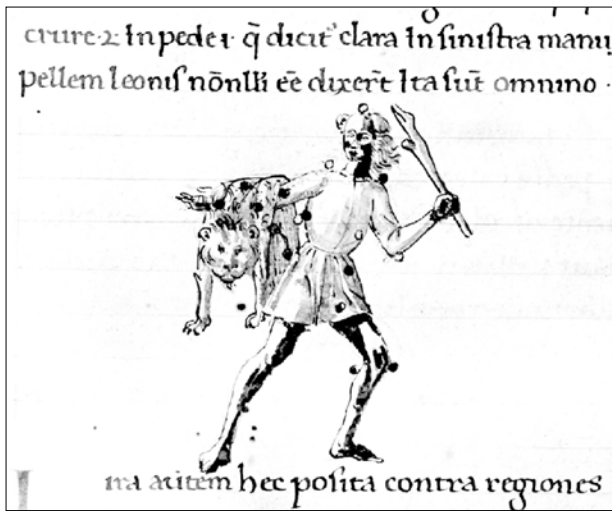 crure·2 In pede·1· q̄ dicit᷑ clara In sinistra manu
pellem leonis nōnlli eē dixer̄t Ita sūt omnino ·
ra autem hec posita contra regiones